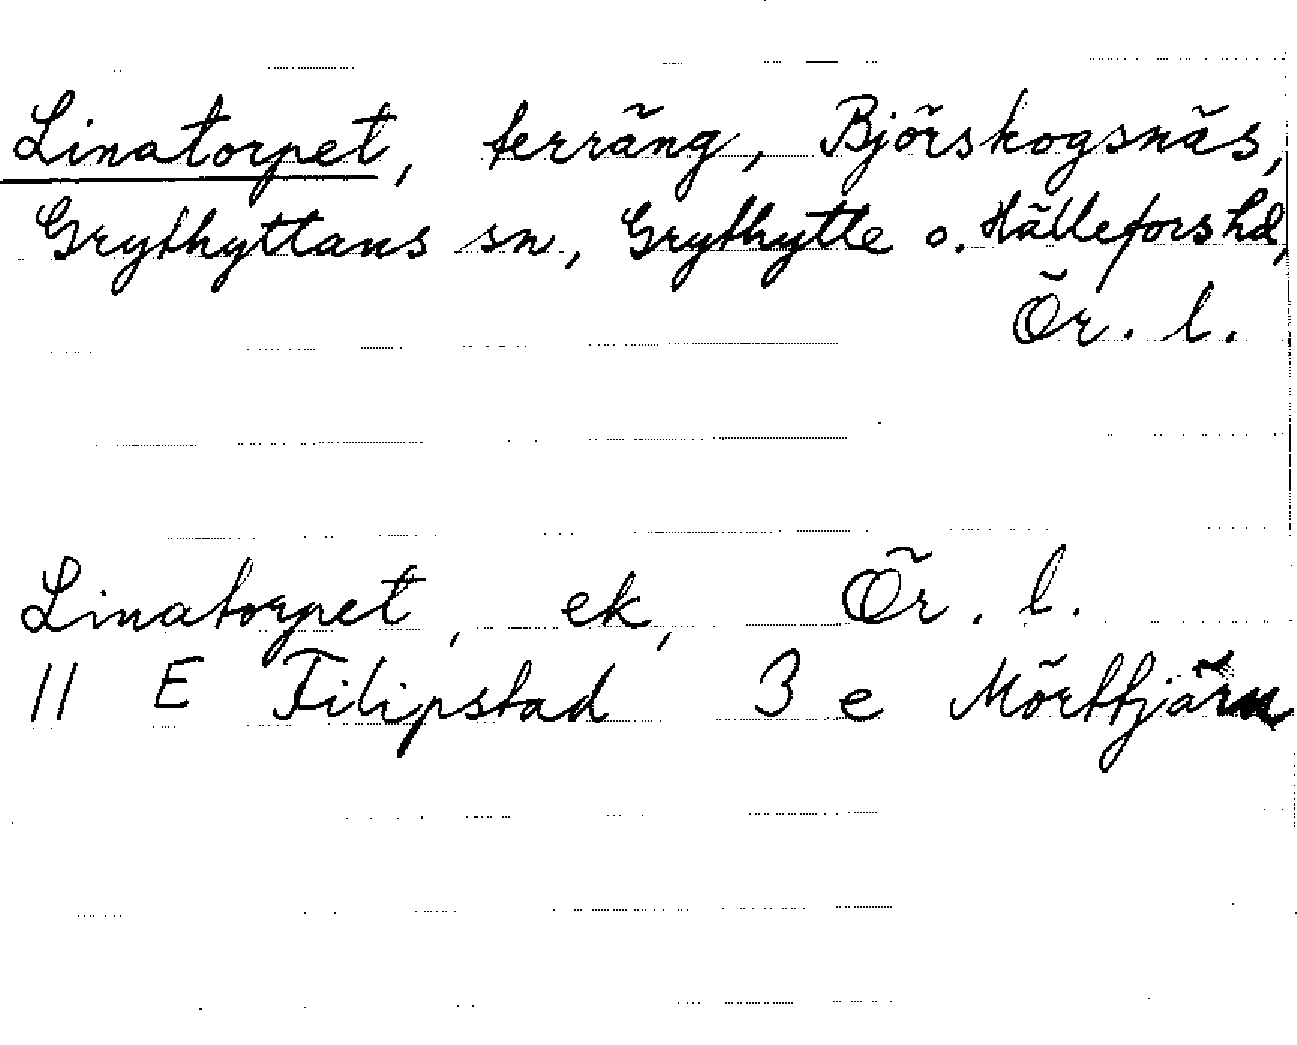 Linatorpet, terräng, Björskogsnäs,
Grythyttans sn, Grythytte o. Hällefors hd,
Ör. l.
Linatorpet, ek, Ör. l.
11 E Filipstad 3 e Mörttjärn